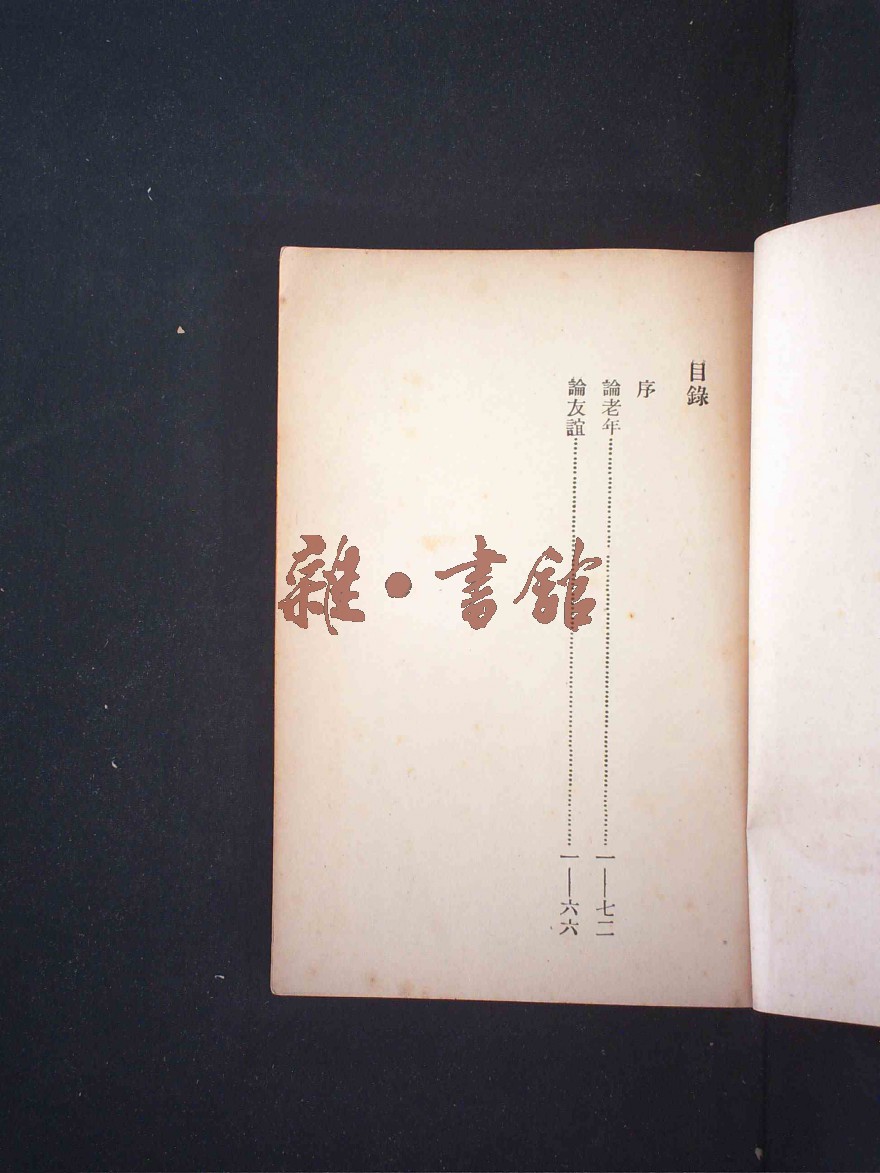 目錄
序
論老年……一——七二
論友誼……一——六六
雜·書館